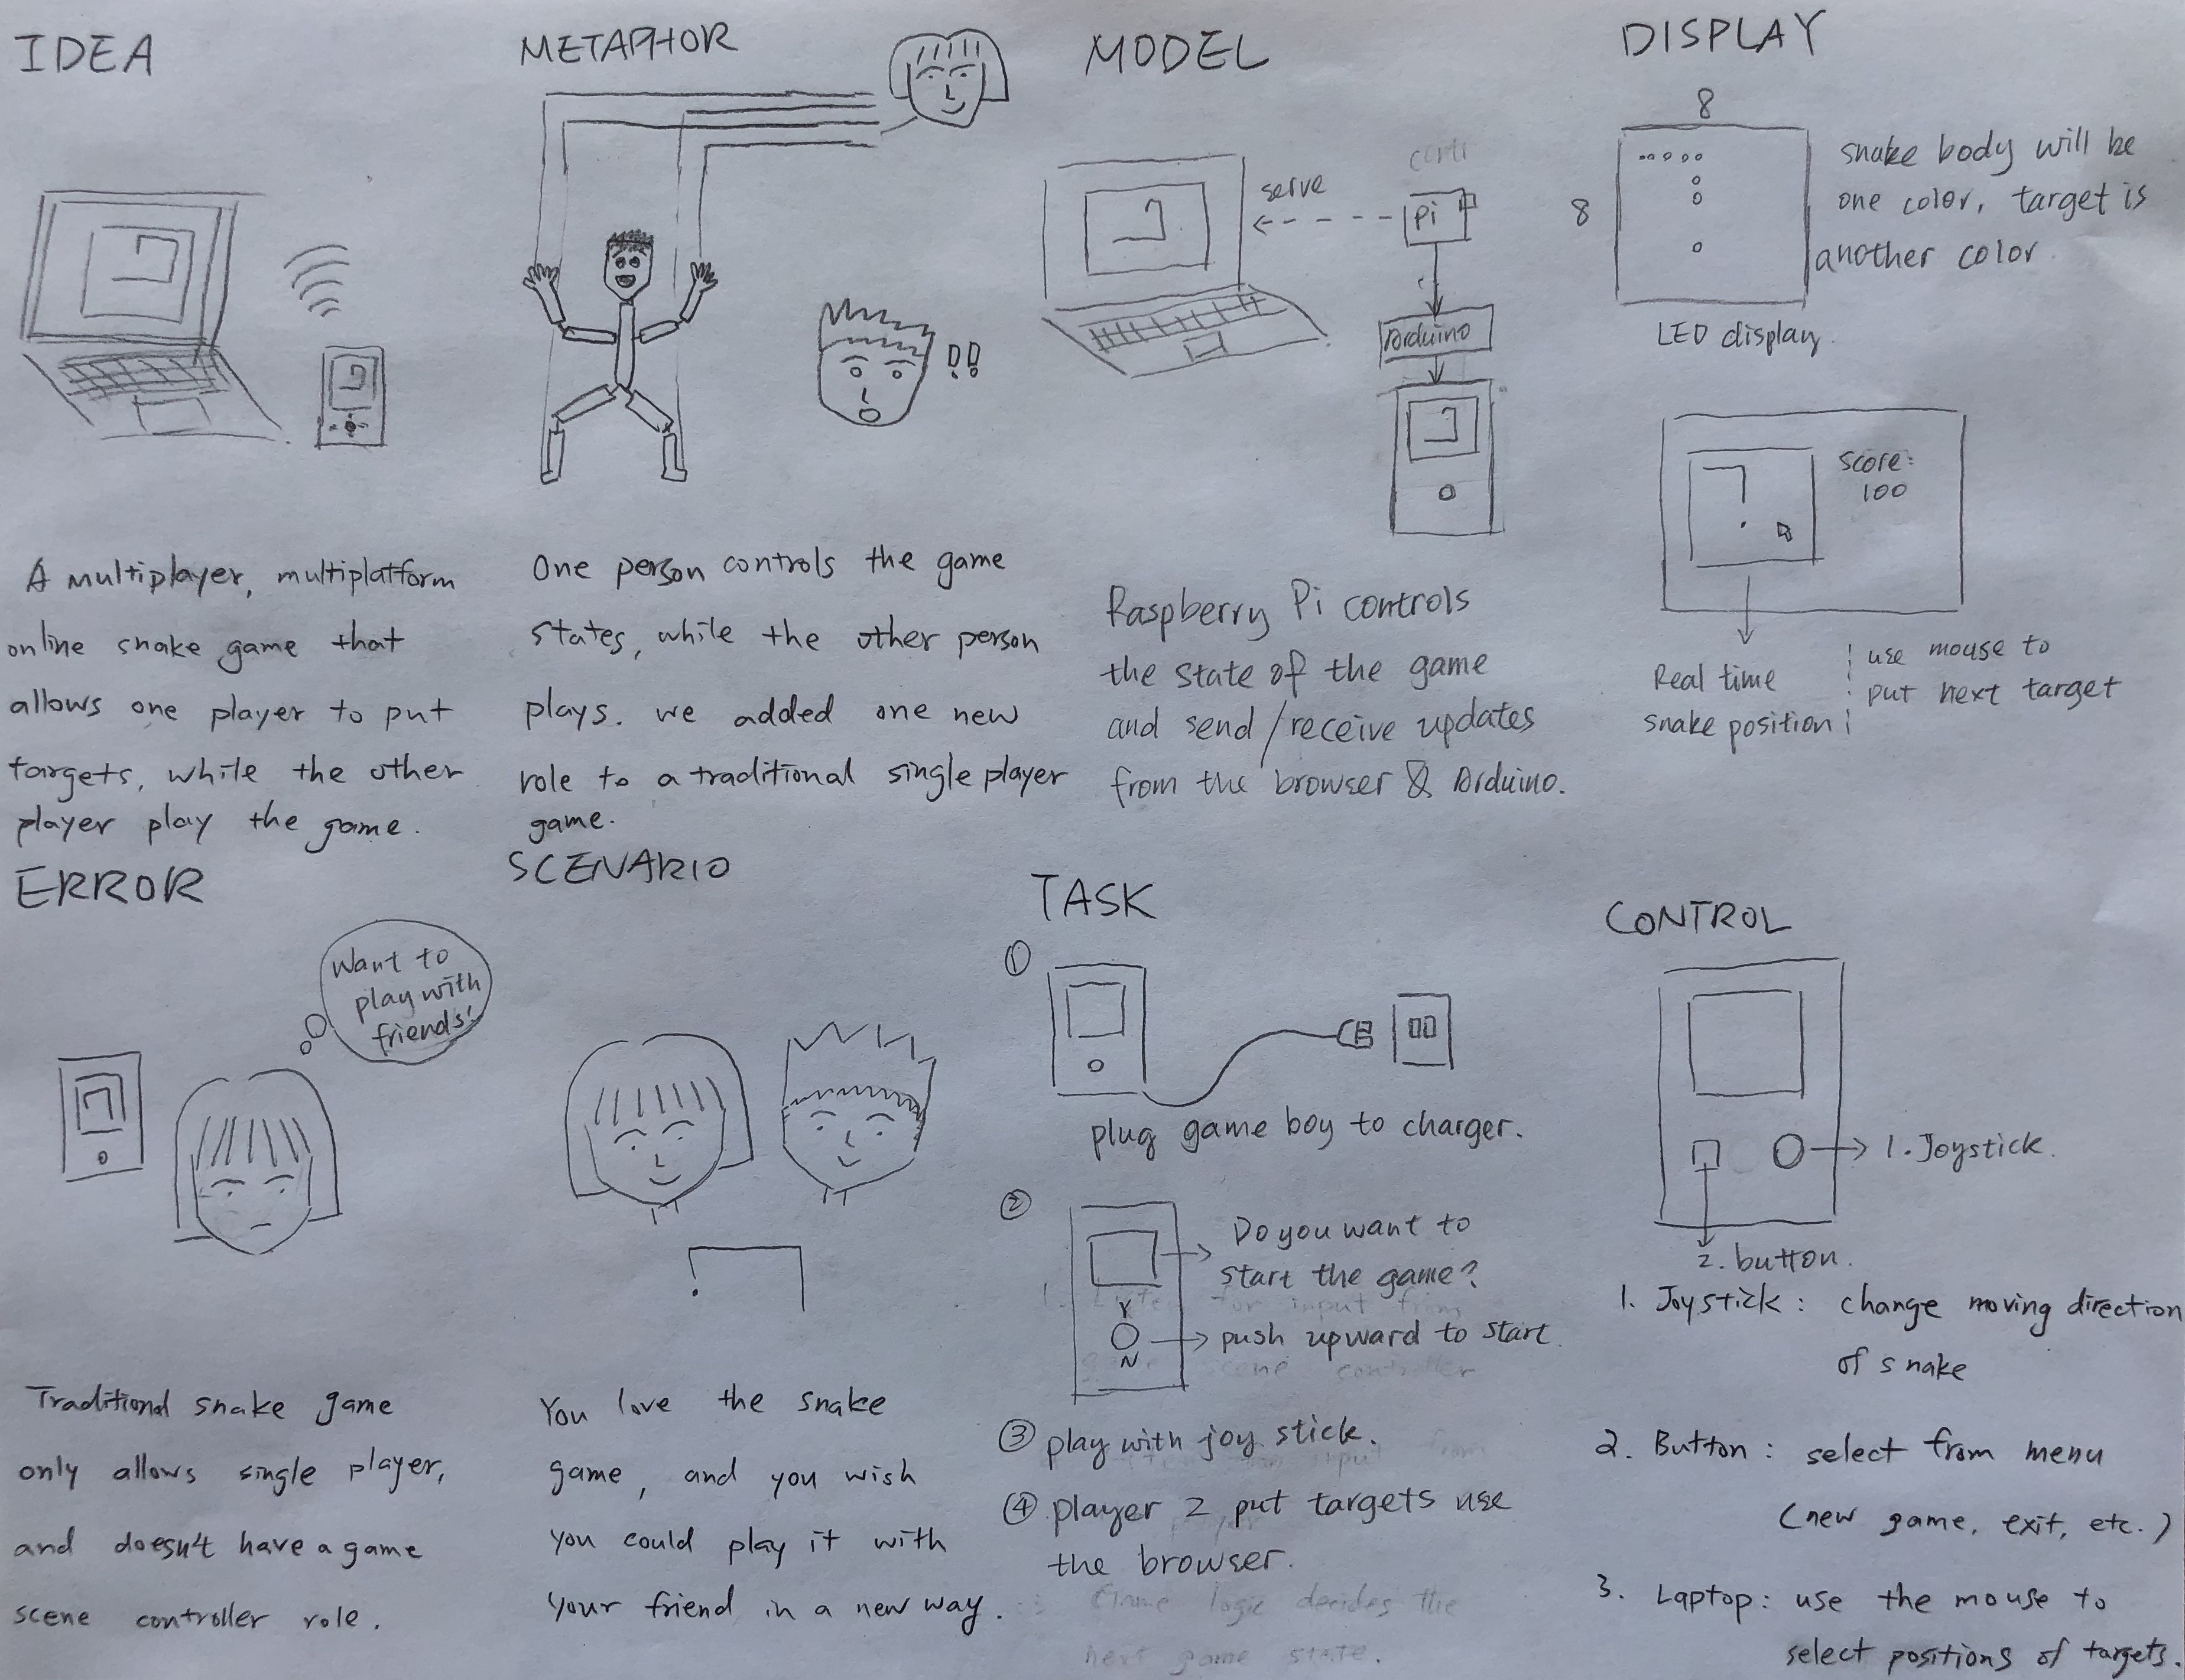 IDEA
A multiplayer, multiplatform
online snake game that
allows one player to put
targets, while the other
player play the game.
METAPHOR
!!
One person controls the game
states, while the other person
plays. we added one new
role to a traditional single player
game.
MODEL
serve
Pi
Arduino
Raspberry Pi controls
the state of the game
and send/receive updates
from the browser & Arduino.
DISPLAY
8
8
snake body will be
one color, target is
another color.
LED display.
score:
100
Real time
snake position
use mouse to
put next target
ERROR
Want to
play with
friends!
Traditional snake game
only allows single player,
and doesn't have a game
scene controller role.
SCENARIO
You love the snake
game, and you wish
you could play it with
your friend in a new way.
TASK
①
plug game boy to charger.
②
Do you want to
start the game?
Y
N
push upward to start.
③ play with joy stick.
④ player 2 put targets use
the browser.
Game logic decides the
next game state.
CONTROL
1. Joystick.
2. button.
1. Joystick: change moving direction
of snake
2. Button: select from menu
(new game, exit, etc.)
3. Laptop: use the mouse to
select positions of targets.